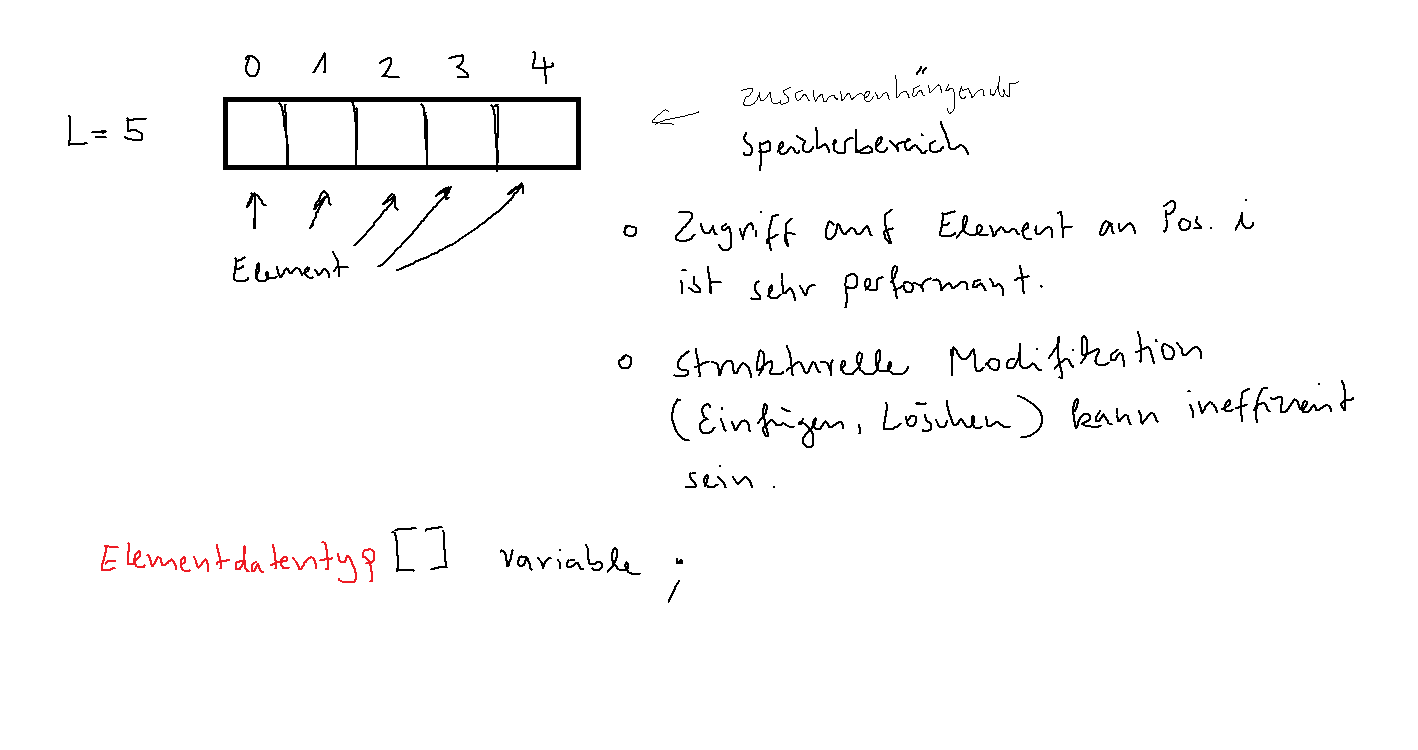 0 1 2 3 4
L = 5
zusammenhängender
Speicherbereich
Element
o Zugriff auf Element an Pos. i
ist sehr performant.
o Strukturelle Modifikation
(Einfügen, Löschen) kann ineffizient
sein.
Elementdatentyp [] variable ;